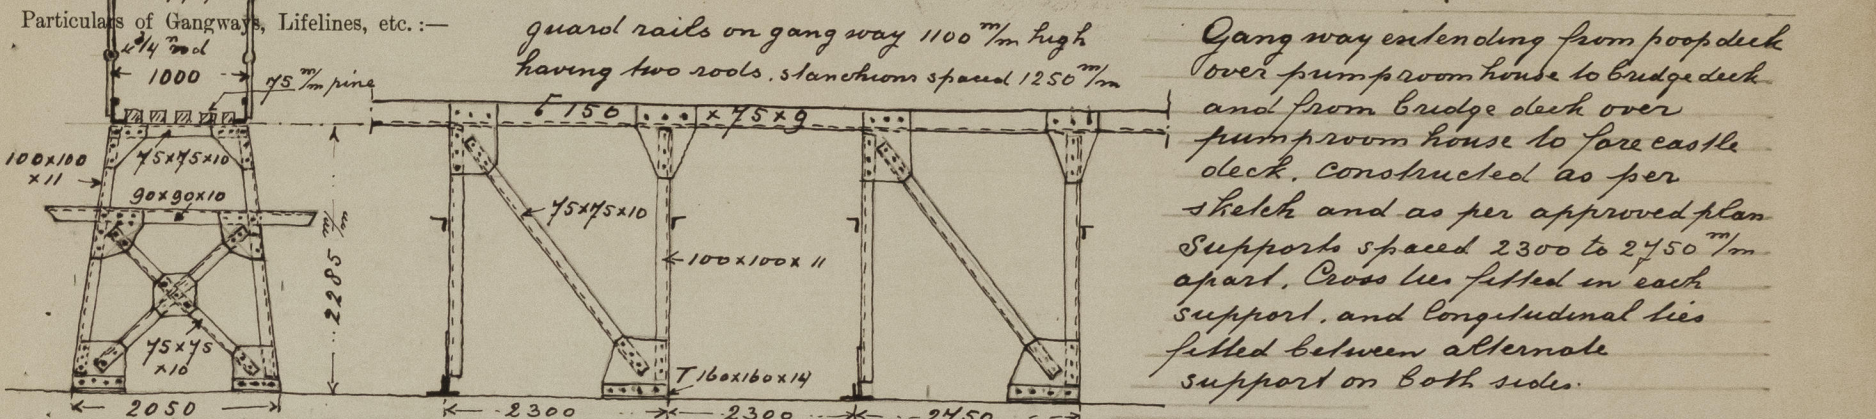 Particulars of Gangways, Lifelines, etc. :—
guard rails on gangway 1100 m/m high
having two rods. stanchions spaced 1250 m/m
3/4" rod
1000
75 m/m pine
[ 150 × 75 × 9
100×100
×11
75×75×10
90×90×10
2285 m/m
75×75×10
100×100×11
75×75
×10
T 160×160×14
2050
2300
2300
2750
Gangway extending from poop deck
over pumproom house to bridge deck
and from bridge deck over
pumproom house to forecastle
deck. Constructed as per
sketch and as per approved plan
Supports spaced 2300 to 2750 m/m
apart. Cross ties fitted in each
support. and longitudinal ties
fitted between alternate
support on both sides.